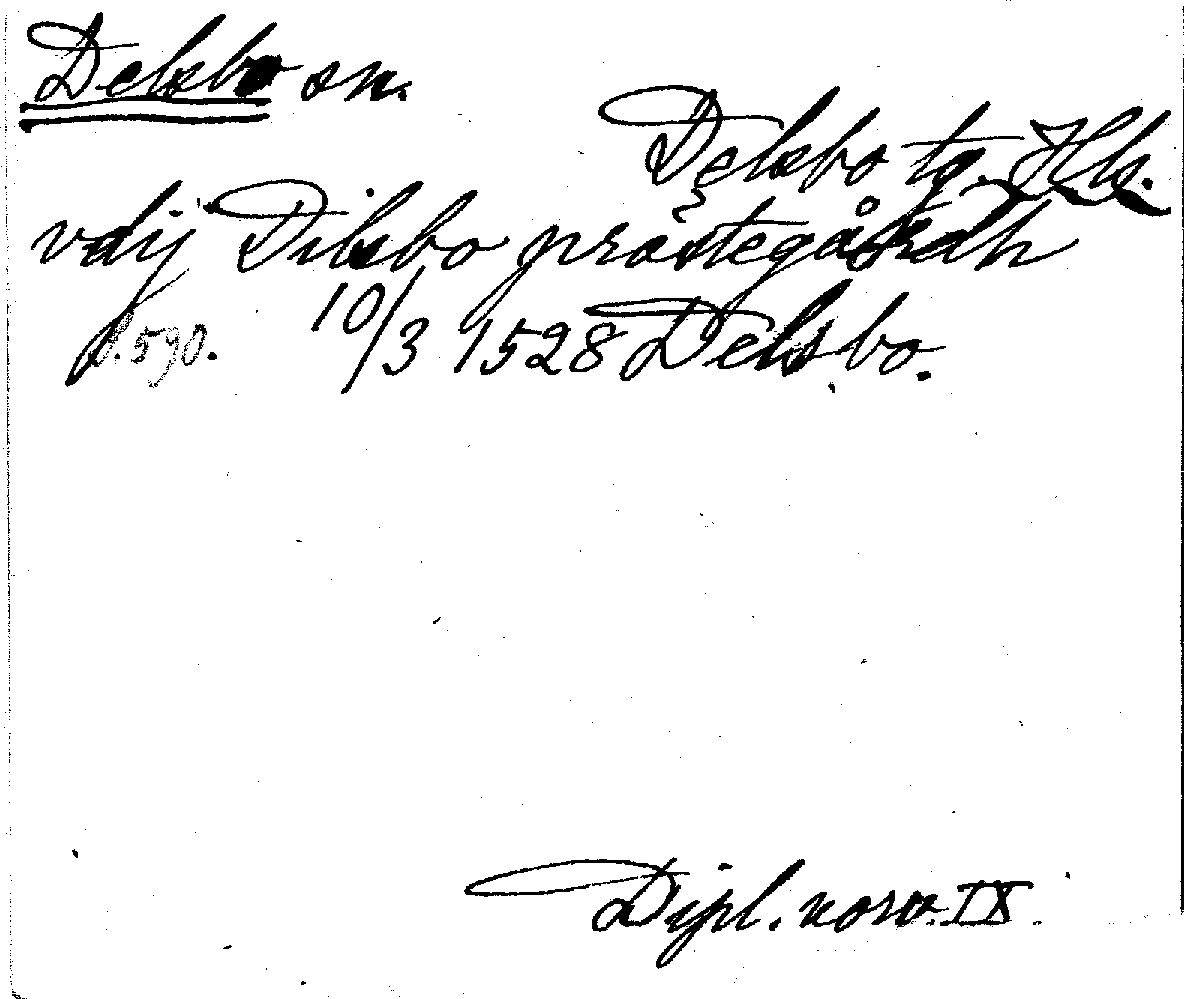 Delsbo sn.
Delsbo tg. Hls.
vdij Dilsbo præstegårdh
s. 590. 10/3 1528 Delsbo.
Dipl. norv. IX.